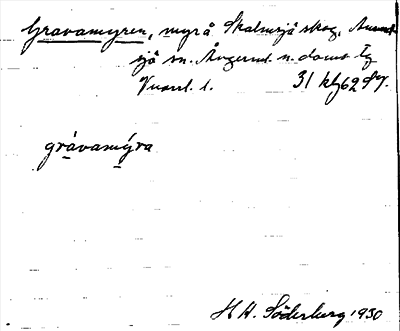 Gravamyren, myrå Skalmsjö skog, Anund-
sjö sn. Ångerml. n. doms
31 62
grávamýra
H. H. Söderberg 1930